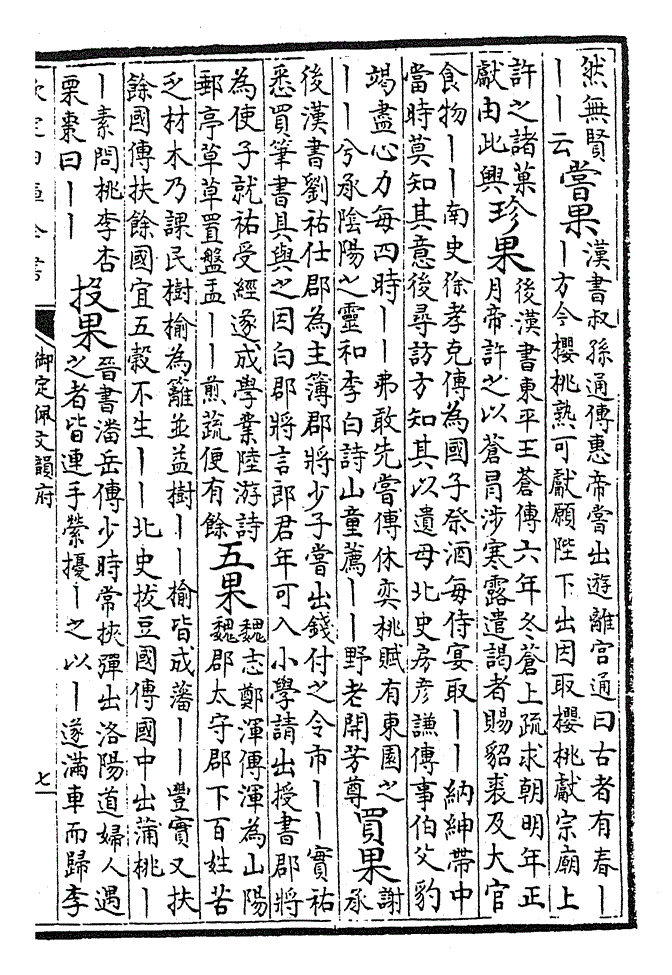 然無賢
丨丨云
嘗果
漢書叔孫通傳惠帝嘗出遊離宫通曰古者有春丨
丨方今櫻桃熟可獻願陛下出因取櫻桃獻宗廟上
許之諸菓
獻由此興
珍果
後漢書東平王蒼傳六年冬蒼上疏求朝明年正
月帝許之以蒼冒涉寒露遣謁者賜貂裘及大官
食物丨丨南史徐孝克傳為國子祭酒每侍宴取丨丨納紳帶中
當時莫知其意後尋訪方知其以遺母北史房彦謙傳事伯父豹
竭盡心力每四時丨丨弗敢先嘗傳休奕桃賦有東園之
丨丨兮承隂陽之靈和李白詩山童薦丨丨野老開芳尊
買果
謝
承
後漢書劉祐仕郡為主簿郡將少子嘗出錢付之令市丨丨實祐
悉買筆書具與之因白郡將言郎君年可入小學請出授書郡將
為使子就祐受經遂成學業陸游詩
郵亭草草置盤盂丨丨煎蔬便有餘
五果
魏志鄭渾傳渾為山陽
魏郡太守郡下百姓苦
乏材木乃課民樹榆為籬並益樹丨丨榆皆成藩丨丨豐實又扶
餘國傳扶餘國宜五穀不生丨丨北史拔豆國傳國中出蒲桃丨
丨素問桃李杏
栗棗曰丨丨
投果
晉書潘岳傳少時常挾彈出洛陽道婦人遇
之者皆連手縈擾丨之以丨遂滿車而歸李
欽定四庫全書
御定佩文韻府
七